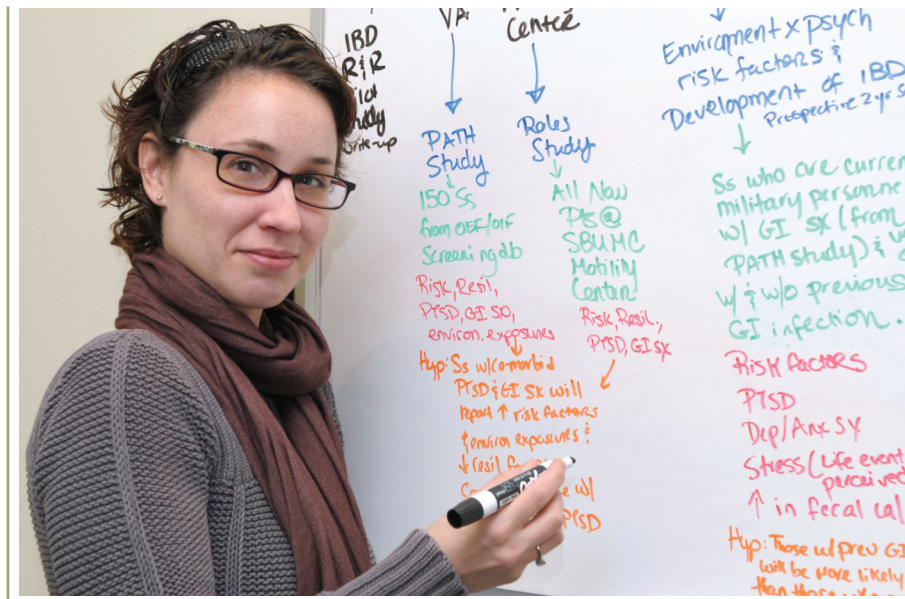 IBD
R&R
Study
write-up
VA
PATH
Study
150 Ss
from OEF/OIF
Screening db
Risk, Resil,
PTSD, GI SX,
environ. exposures
Hyp: Ss w/co-morbid
PTSD & GI SX will
report ↑ risk factors
& environ exposures &
↓ resil
w/
PTSD
Center
Roles
Study
All New
Pts @
SBUMC
Motility
Center
Risk, Resil.,
PTSD, GI SX
Environment x psych
risk factors &
Development of IBD
Prospective 2 yr s
Ss who are curren
military personne
w/ GI SX (from
PATH study) &
w/ & w/o previous
GI infection.
Risk factors
PTSD
Dep/Anx SX
Stress (Life event
perceived
↑ in fecal cal
Hyp: Those w/ prev GI
will be more likely
than those